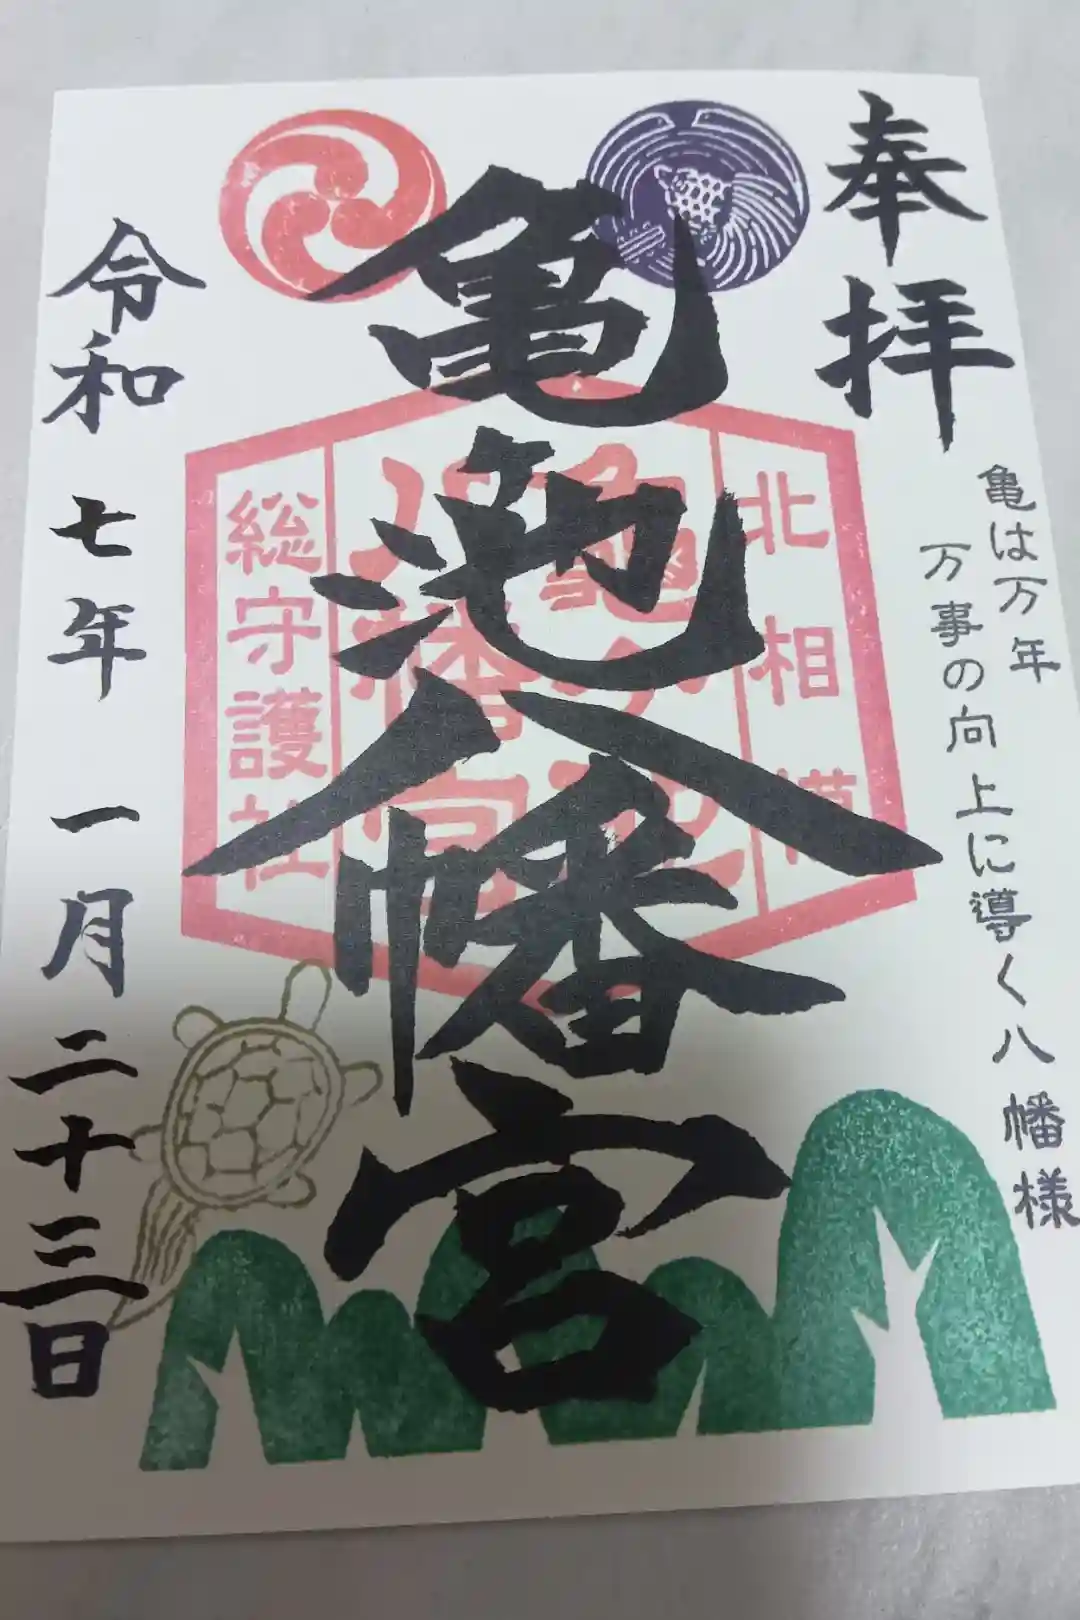 奉拝
亀は万年
万事の向上に導く八幡様
亀池八幡宮
北相模
亀ヶ池
八幡宮
総守護社
令和七年一月二十三日